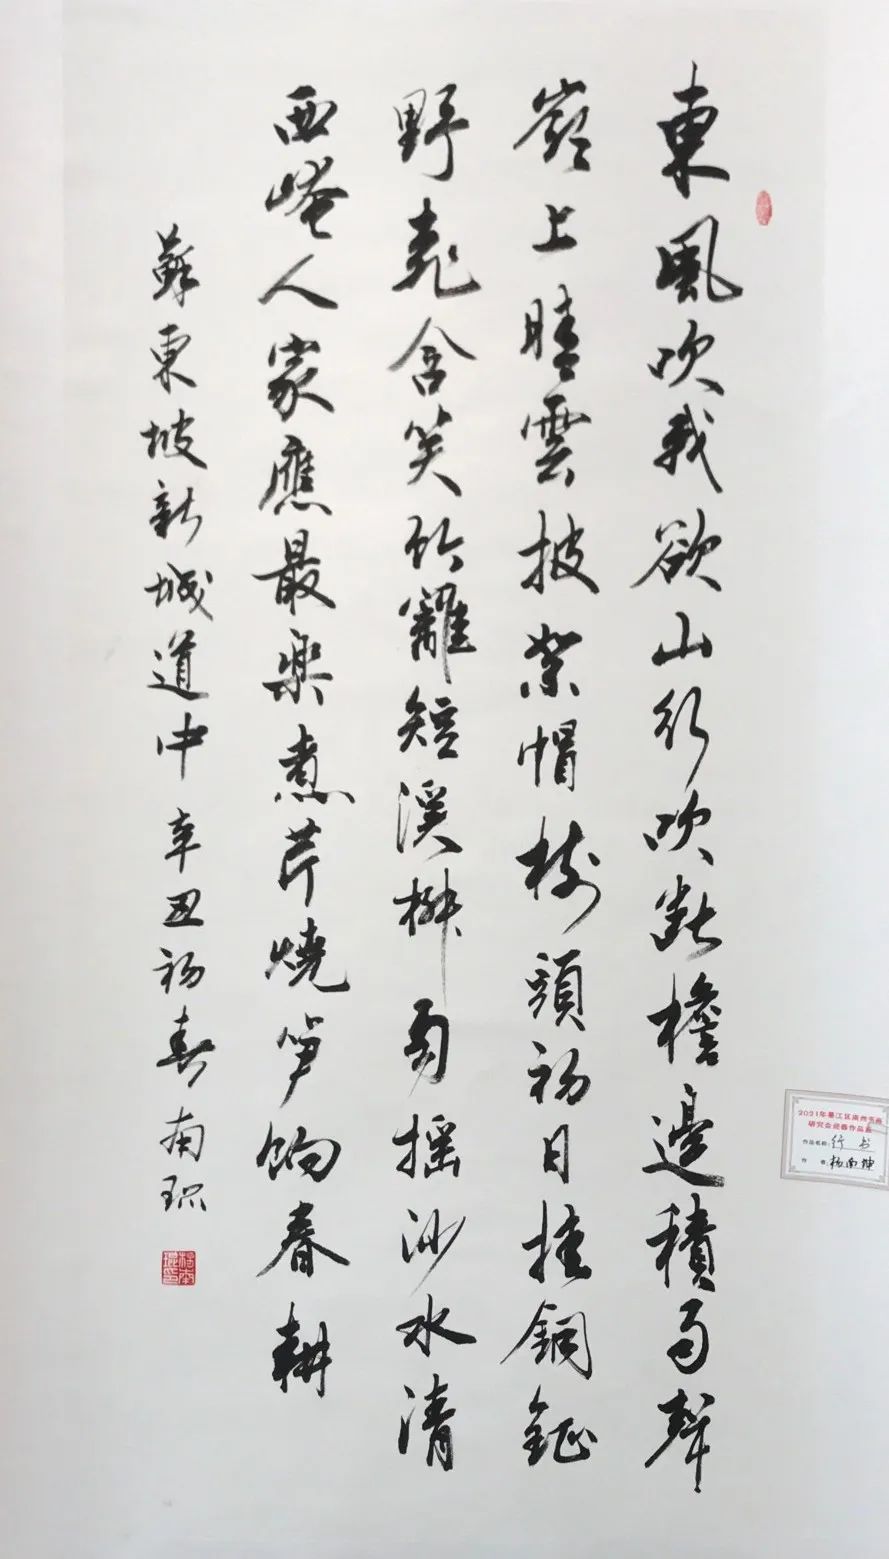 東風吹我欲山行吹斷檐邊積雨聲
嶺上晴雲披絮帽樹頭初日挂銅鉦
野桃含笑竹籬短溪柳自搖沙水清
西崦人家應最樂煮芹燒笋餉春耕
蘇東坡新城道中 辛丑初春 南琨
2021年綦江区南州书画
研究会迎春作品展
作品名称:行书
作 者:杨南坤